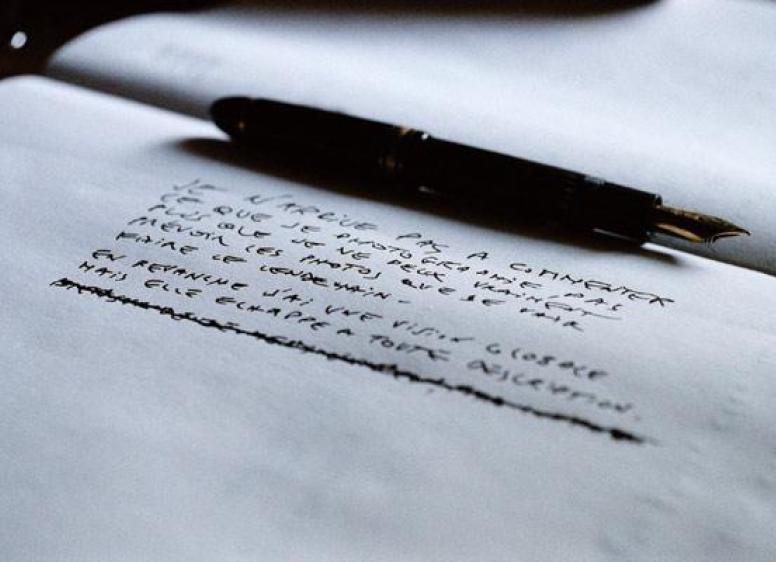 JE N'ARRIVE PAS A COMMENTER
CE QUE JE PHOTOGRAPHIE PAS
PLUS QUE JE NE PEUX VRAIMENT
PREVOIR LES PHOTOS QUE JE VAIS
FAIRE LE LENDEMAIN.
EN REVANCHE J'AI UNE VISION GLOBALE
MAIS ELLE ECHAPPE A TOUTE DESCRIPTION.